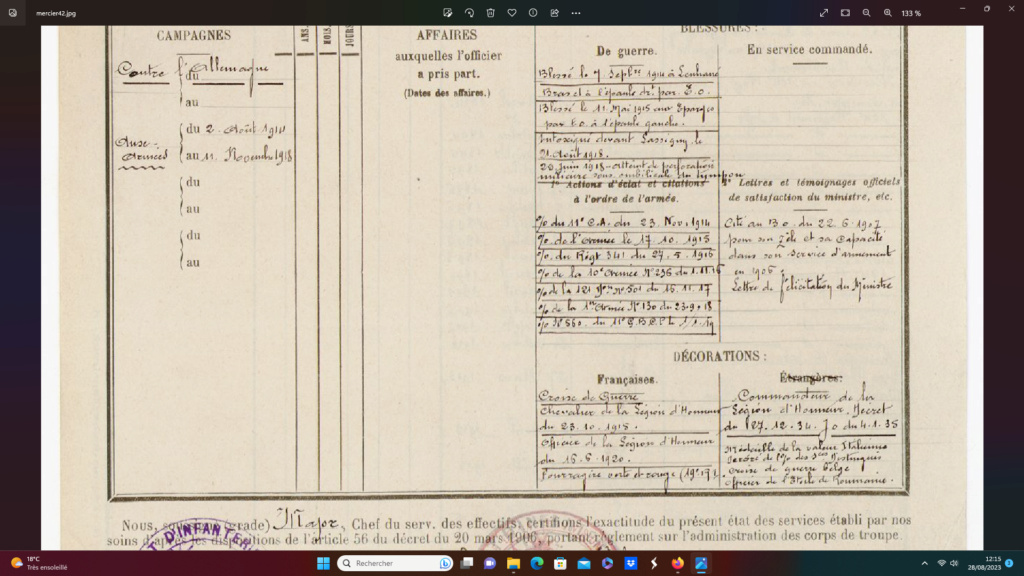 mercier42.jpg
133 %
CAMPAGNES
ANS.
MOIS.
JOURS
AFFAIRES
auxquelles l'officier
a pris part.
(Dates des affaires.)
BLESSURES :
De guerre.
En service commandé.
Contre l'Allemagne
du
au
du 2. Août 1914
au 11. Novembre 1918
Aux
Armées
du
au
du
au
Blessé le 7 Septbre 1914 à
à l'épaule dr. par E.O.
Blessé le 11 Mai 1915 aux Eparges
par E.O. à l'épaule gauche.
Intoxiqué devant Lassigny le
21 Août 1918.
20 Juin 1918 - Atteint de perforation
du tympan
1° Actions d'éclat et citations
à l'ordre de l'armée.
2° Lettres et témoignages officiels
de satisfaction du ministre, etc.
% du 11e C.A. du 23. Nov. 1914
% de l'Armée le 17. 10. 1915
% du Régt 341 du 27. 5. 1916
% de la 10e Armée N° 236 du 1.11.16
% de la 121 N° 501 du 15.11.17
% de la 1re Armée N° 130 du 23.9.18
% N° 560. du 11e
Cité au B.O. du 22.6.1907
pour son zèle et sa capacité
dans son service d'armement
en 1906
Lettre de félicitation du Ministre
DÉCORATIONS :
Françaises.
Étrangères:
Croix de Guerre
Chevalier de la Légion d'Honneur
du 23.10.1915.
Officier de la Légion d'Honneur
du 16.6.1920.
Fourragère verte et rouge
Commandeur de la
Légion d'Honneur. Décret
du 27.12.34. JO du 4.1.35
Médaille de la valeur Italienne
croix de guerre belge
officier de l'Etoile de Roumanie.
Nous, (grade) Major, Chef du serv. des effectifs, certifions l'exactitude du présent état des services établi par nos
soins d'après les dispositions de l'article 56 du décret du 20 mars 1906, portant règlement sur l'administration des corps de troupe.
T D'INFANTERIE
18°C
Très ensoleillé
Rechercher
12:15
28/08/2023